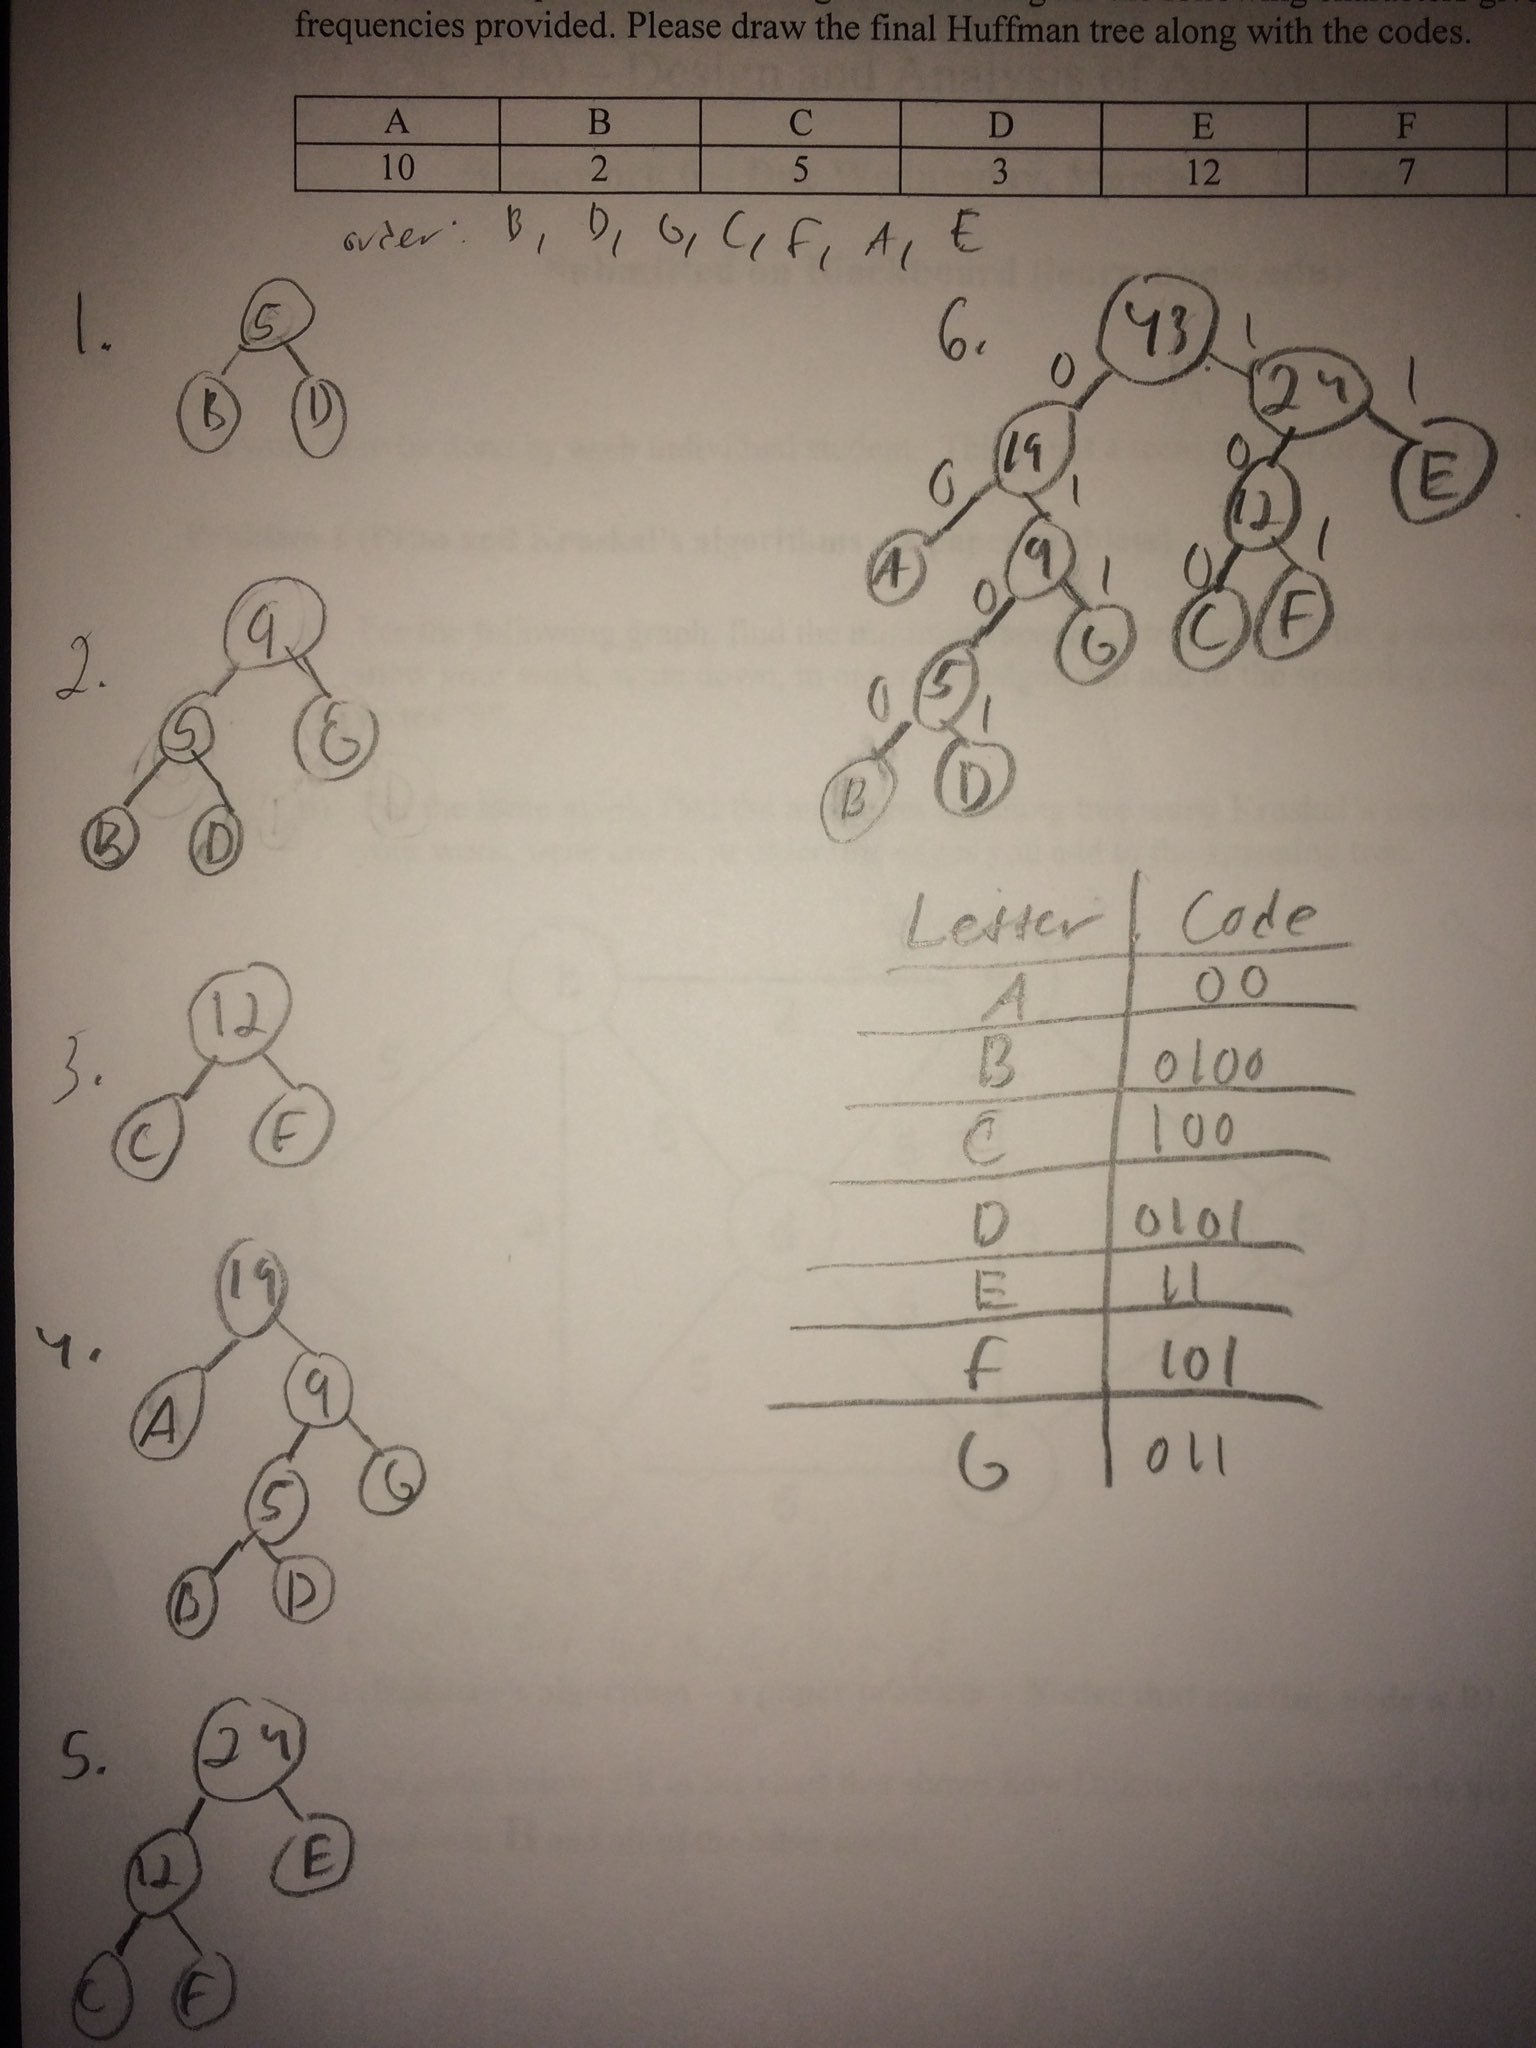 frequencies provided. Please draw the final Huffman tree along with the codes.
A B C D E F
10 2 5 3 12 7
order: B, D, G, C, F, A, E
1.
5
B D
2.
9
5 G
B D
3.
12
C F
4.
19
A 9
5 G
B D
5.
24
12 E
C F
6.
43
0 1
19 24
0 1 0 1
A 9 12 E
0 1 0 1
5 G C F
0 1
B D
Letter Code
A 00
B 0100
C 100
D 0101
E 11
F 101
G 011